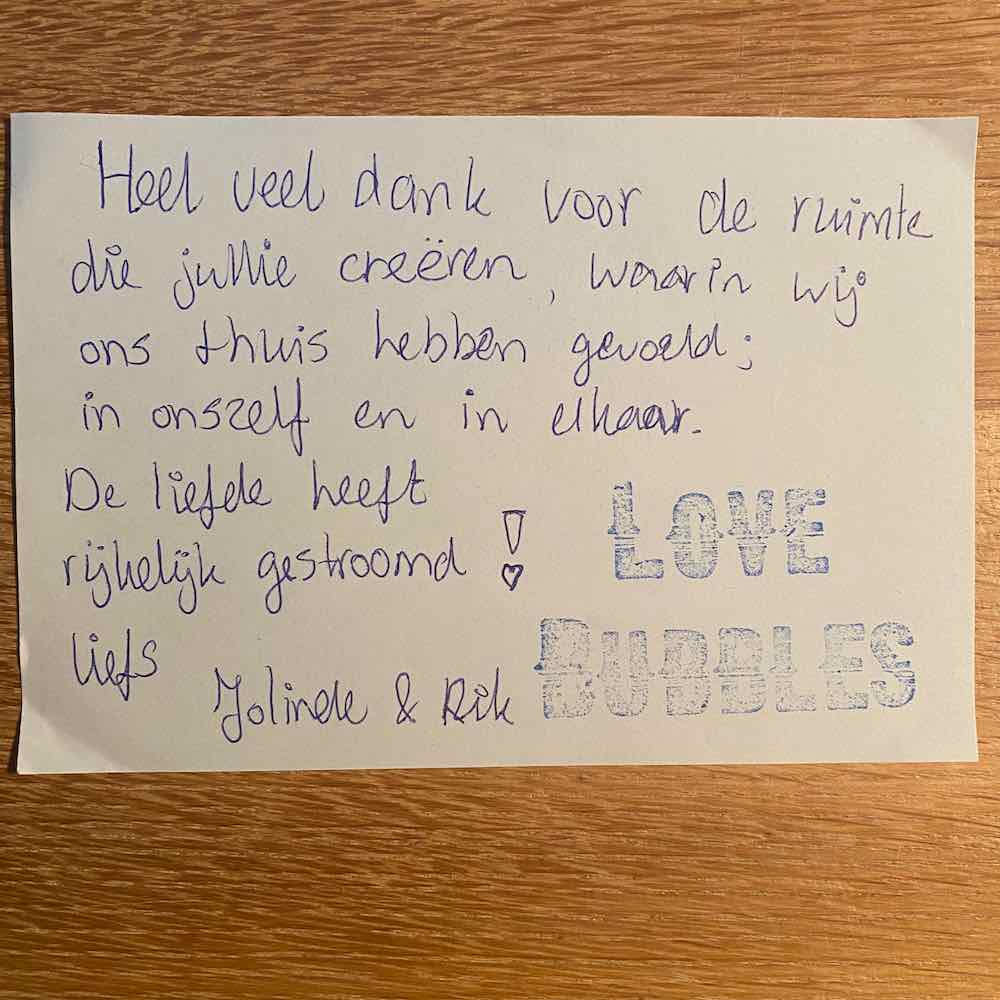 Heel veel dank voor de ruimte
die jullie creëren, waarin wij
ons thuis hebben gevoeld;
in onszelf en in elkaar.
De liefde heeft
rijkelijk gestroomd!
liefs
Jolinde & Rik
LOVE
BUBBLES